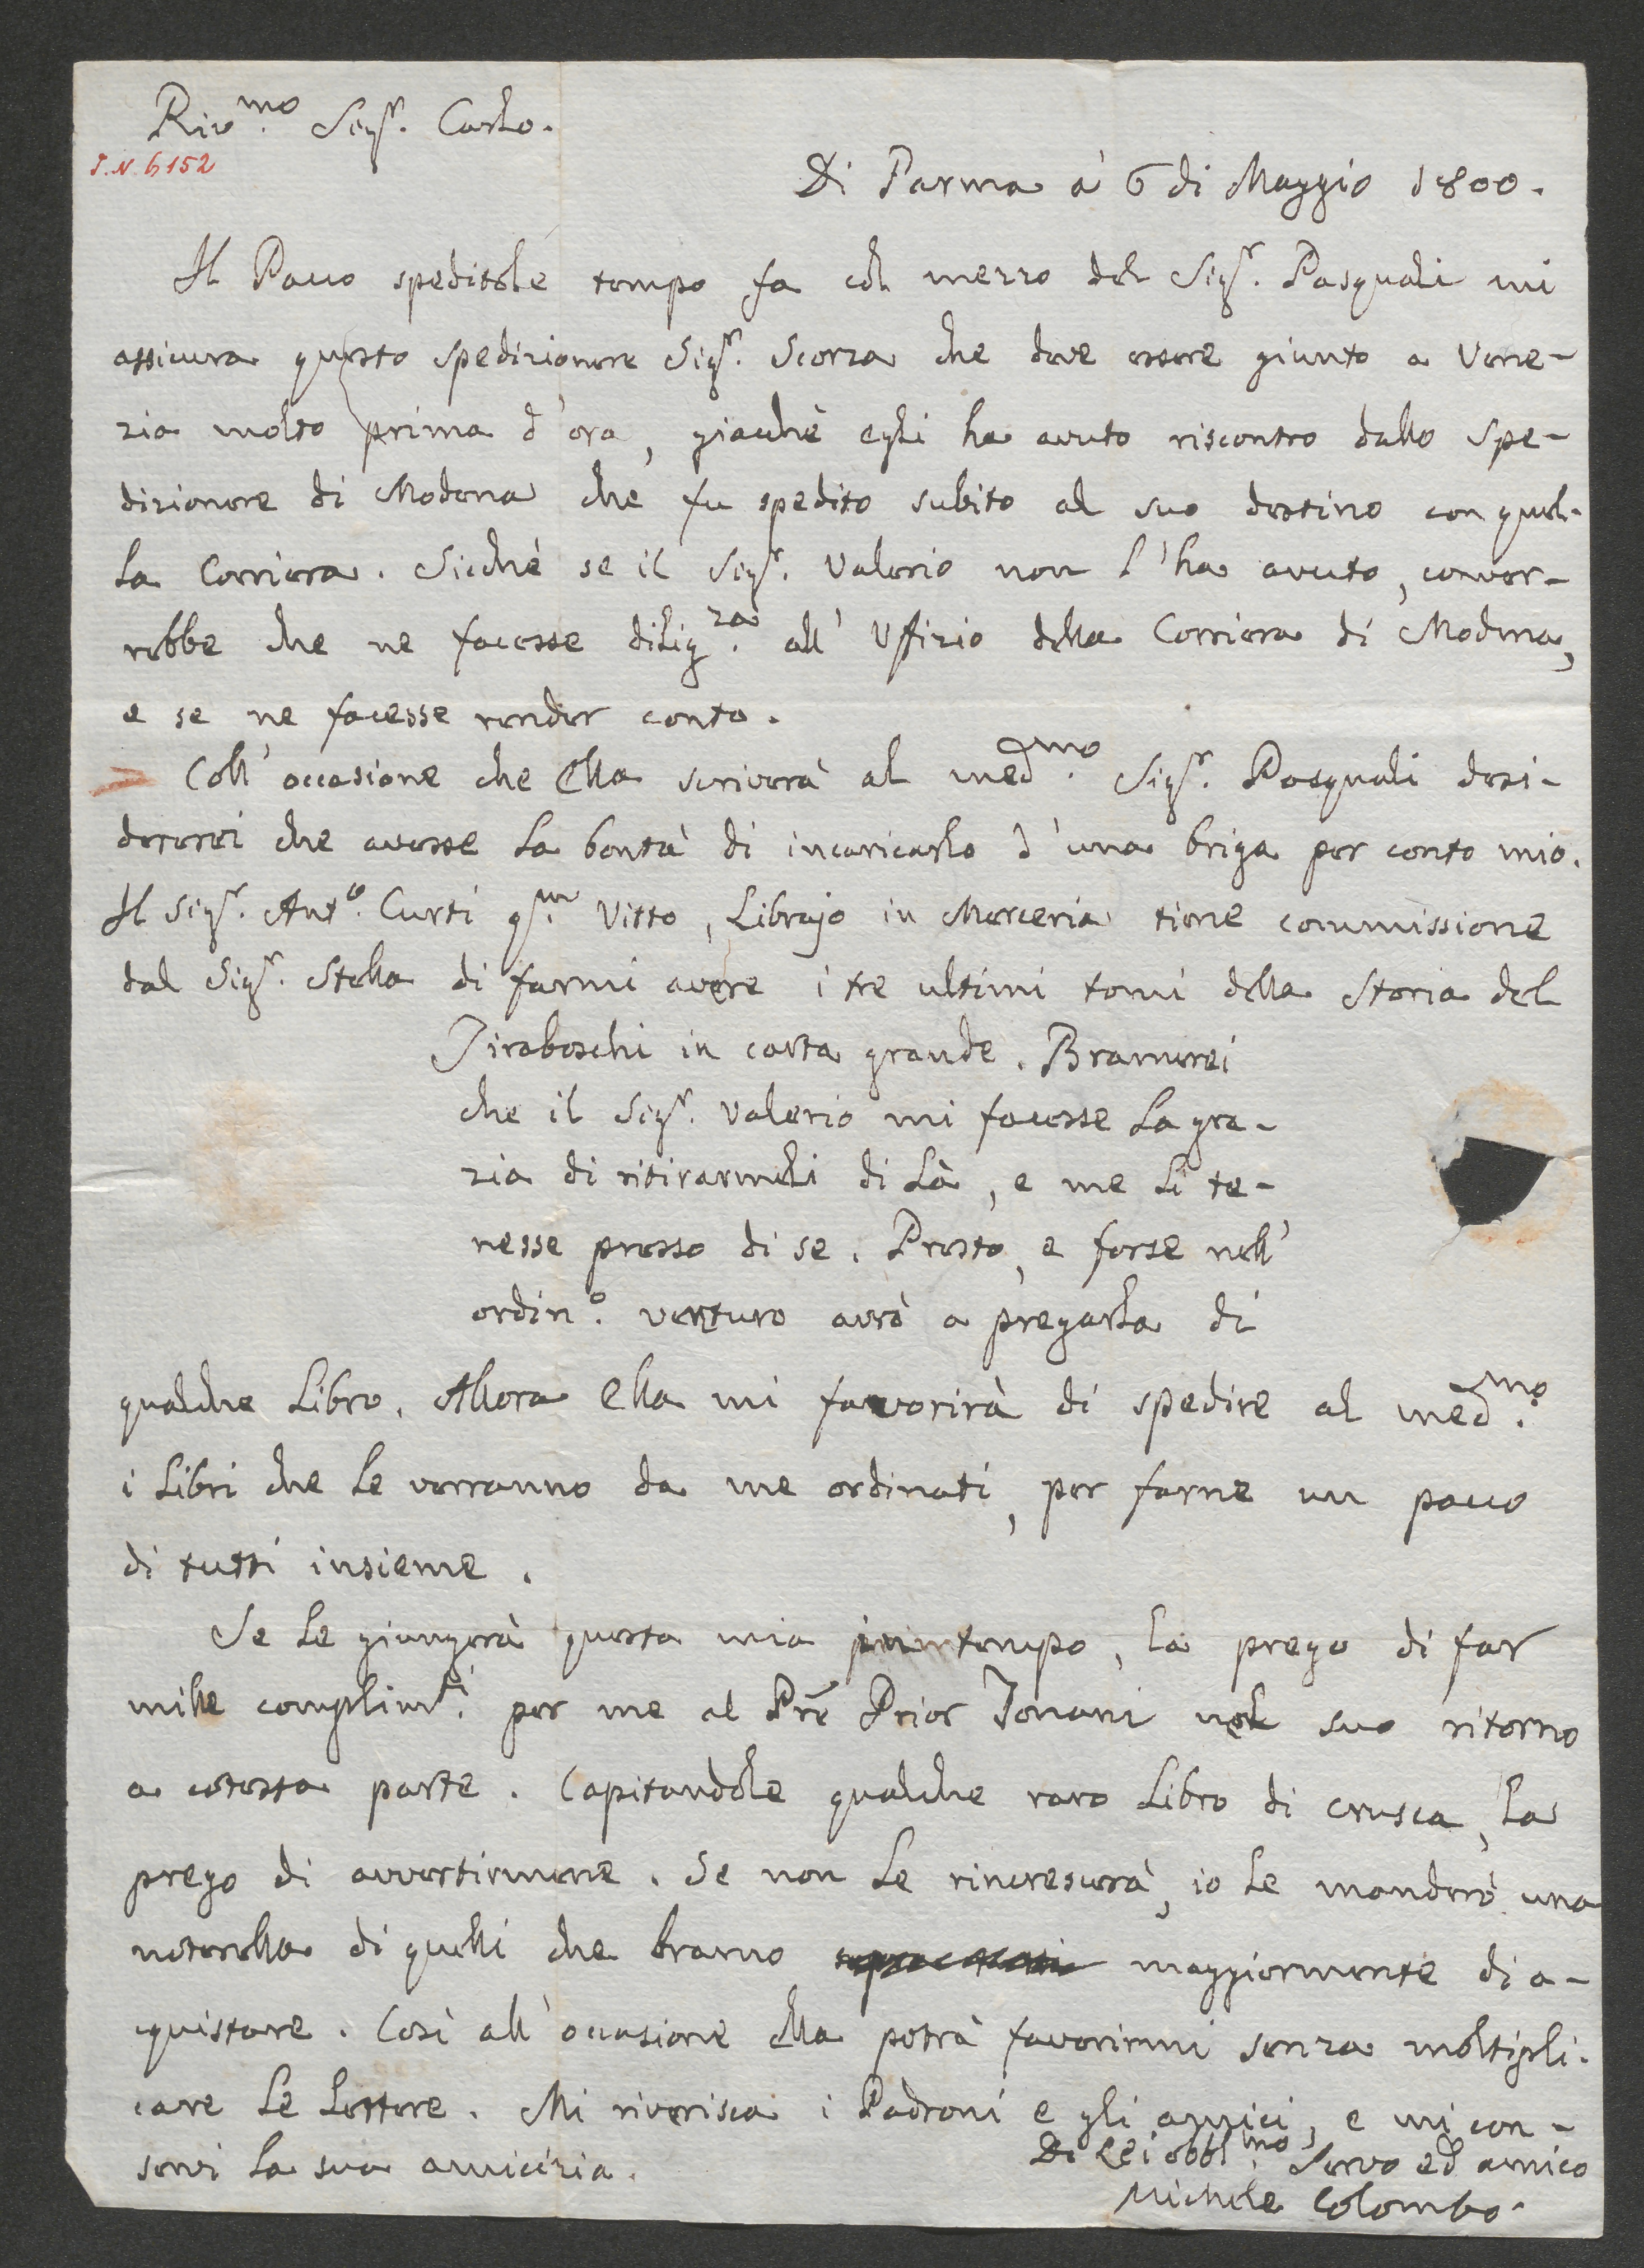 Riv.mo Sigr. Carlo.
I.N. 6152
Di Parma à 6 di Maggio 1800.
Il Pacco speditole tempo fa col mezzo del Sigr. Pasquali mi
assicura questo spedizionere Sigr. Scorza che deve essere giunto a Vene-
zia molto prima d'ora, giacchè egli ha avuto riscontro dallo spe-
dizionere di Modena che fu spedito subito al suo destino con quel-
la Corriera. Sicchè se il Sigr. Valerio non l'ha avuto, conver-
rebbe che ne facesse dilig.za all' Uffizio della Corriera di Modena,
e se ne facesse render conto.
Coll' occasione che Ella scriverà al med.mo Sigr. Pasquali desi-
dererei che avesse la bontà di incaricarlo d'una briga per conto mio.
Il Sigr. Ant.o Curti qm Vitto, Librajo in Merceria tiene commissione
dal Sigr. Stella di farmi avere i tre ultimi tomi della Storia del
Tiraboschi in carta grande. Bramerei
che il Sigr. Valerio mi facesse la gra-
zia di ritirarmeli di là, e me li te-
nesse presso di se. Presto, e forse nell'
ordin.o venturo avrò a pregarla di
qualche Libro. Allora Ella mi favorirà di spedire al med.mo
i Libri che le verranno da me ordinati, per farne un pacco
di tutti insieme.
Se le giungerà questa mia in tempo, la prego di far
mille complim.ti per me al Pre Prior Tonani nel suo ritorno
a cotesta parte. Capitandole qualche raro Libro di crusca, la
prego di avvertirmene. Se non le rincrescerà, io le manderò una
noterella di quelli che bramo maggiormente di a-
quistare. Così all' occasione ella potrà favorirmi senza moltipli-
care le lettere. Mi riverisca i Padroni e gli amici, e mi con-
servi la sua amicizia.
Di Lei obbl.mo Servo ed amico
Michele Colombo.